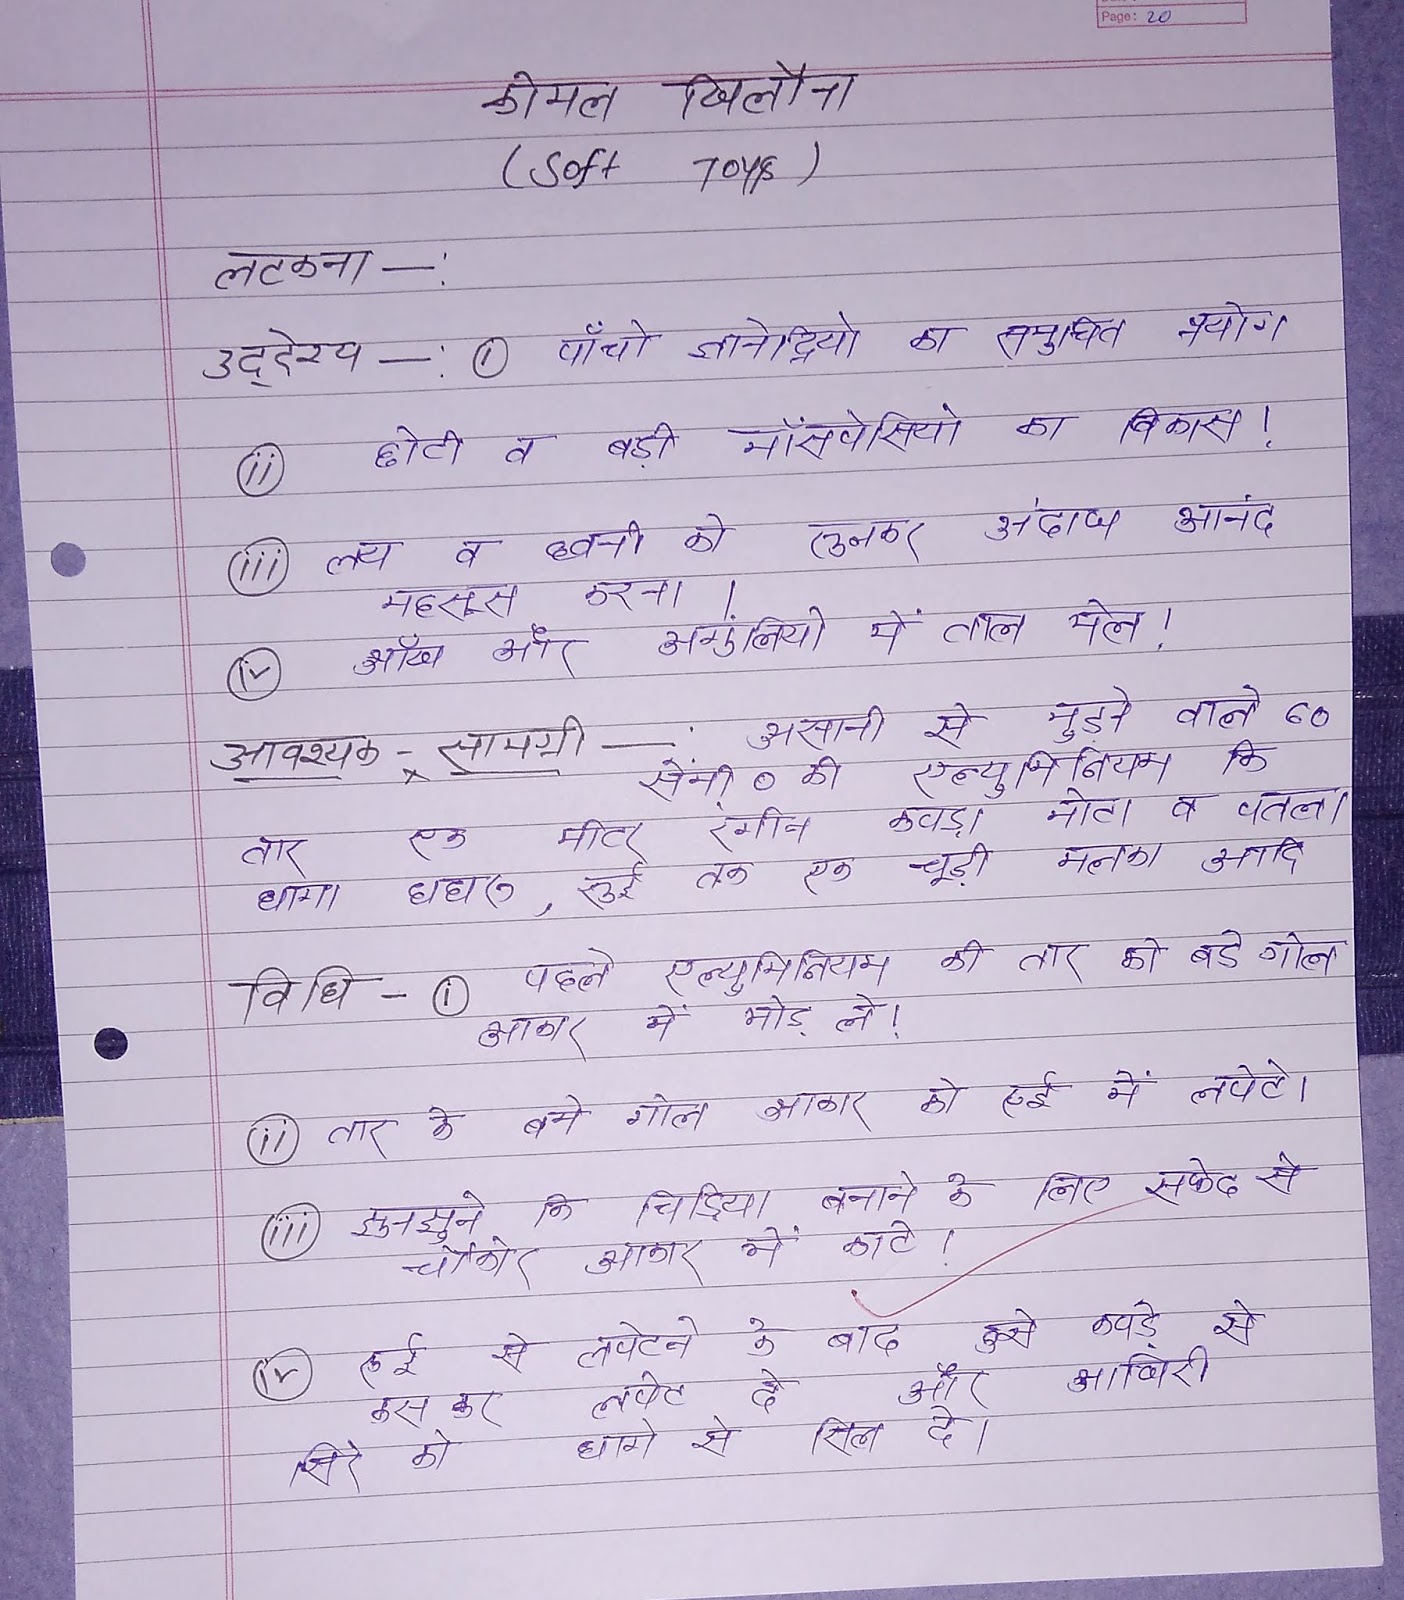 Page: 20
कोमल खिलौना
(Soft Toys)
लटकना —:
उद्देश्य —: (i) पाँचो ज्ञानेद्रियो का समुचित प्रयोग
(ii) छोटी व बड़ी माँसपेसियो का विकास!
(iii) लय व ध्वनी को सुनकर आनंद
महसूस करना।
(iv) आँख और अगुंलियो में ताल मेल!
आवश्यक - सामग्री —: असानी से मुड़ने वाले 60
सेंमी० की एल्युमिनियम कि
तार एक मीटर रंगीन कपड़ा मोटा व पतला
धागा , रुई एक चूड़ी मनका आदि
विधि - (i) पहले एल्युमिनियम की तार को बडे गोल
आकार में मोड़ ले!
(ii) तार के बने गोल आकार को रुई में लपेटे।
(iii) झुनझुने कि चिड़िया बनाने के लिए सफेद से
चौकोर आकार में काटे!
(iv) रुई से लपेटने के बाद उसे कपड़े से
कस कर लपेट दे और आखिरी
सिरे को धागे से सिल दे।